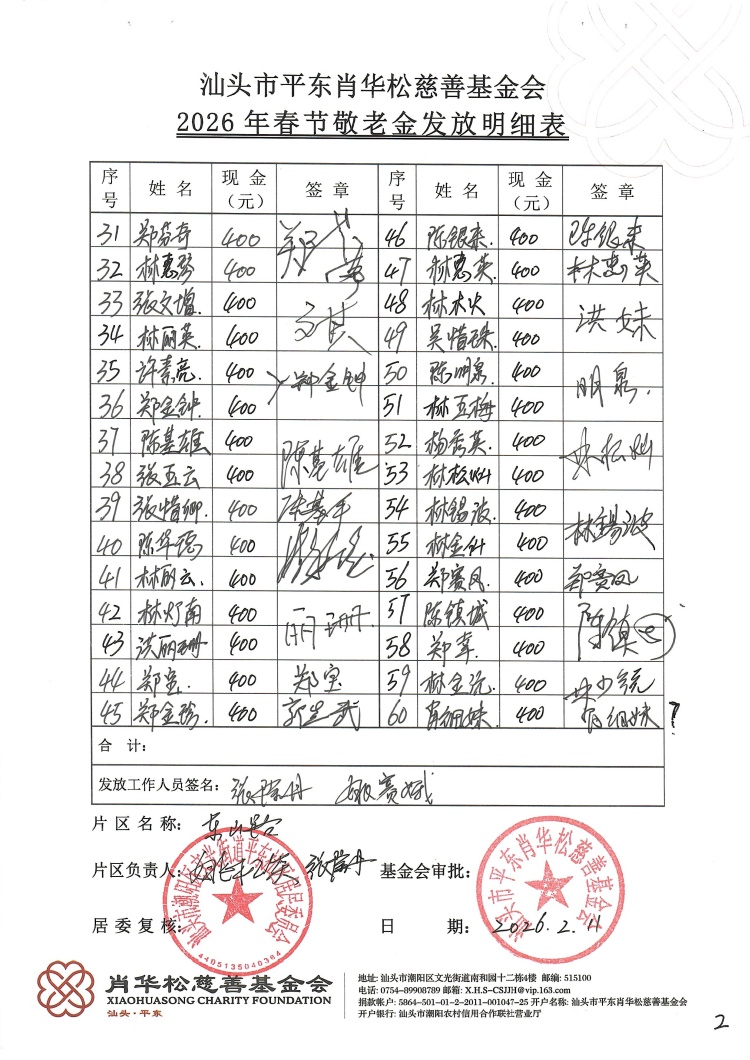 汕头市平东肖华松慈善基金会
2026年春节敬老金发放明细表
序号 姓名 现金(元) 签章 序号 姓名 现金(元) 签章
31 郑芬奇 400 46 陈银来. 400 陈银来
32 林惠 400 47 林惠英. 400 林惠英
33 张文增. 400 48 林木火 400 洪妹
34 林丽英. 400 49 吴惜珠. 400
35 许素亮. 400 郑金钟 50 陈明泉. 400 明泉.
36 郑金钟. 400 51 林五梅 400
37 陈基雄 400 陈基雄 52 杨秀英. 400 林松灿
38 张五云 400 53 林松灿 400
39 张惜卿. 400 54 林锡波. 400 林锡波
40 陈华德 400 55 林金 400
41 林丽云. 400 56 郑赛凤. 400 郑赛凤
42 林灯南 400 丽珊 57 陈镇城 400 陈镇
43 洪丽珊 400 58 郑 400
44 郑宝. 400 郑宝 59 林金 400 林少
45 郑金 400 60 肖细妹. 400 肖细妹
合计:
发放工作人员签名: 张 丹 姚赛
片区名称: 东山
片区负责人: 张 丹 基金会审批:
居委复核: 日期: 2026.2.11
4405135040364
汕头市平东肖华松慈善基金会
肖华松慈善基金会
XIAOHUASONG CHARITY FOUNDATION
汕头·平东
地址: 汕头市潮阳区文光街道南和园十二栋4楼 邮编: 515100
电话: 0754-89908789 邮箱: X.H.S-CSJJH@vip.163.com
捐款帐户: 5864-501-01-2-2011-001047-25 开户名称: 汕头市平东肖华松慈善基金会
开户银行: 汕头市潮阳农村信用合作联社营业厅
2